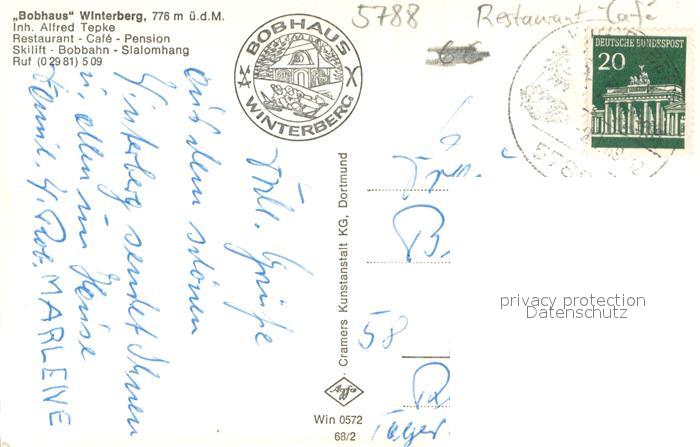 „Bobhaus" Winterberg, 776 m ü.d.M.
Inh. Alfred Tepke
Restaurant - Café - Pension
Skilift - Bobbahn - Slalomhang
Ruf (0 29 81) 5 09
BOBHAUS
WINTERBERG
5788 Restaurant-Café
66
DEUTSCHE BUNDESPOST
20
5788
Grüße
aus dem schönen
Winterberg sendet Ihnen
u. allen im Hause
MARLENE
Cramers Kunstanstalt KG, Dortmund
58
Agfa
Win 0572
68/2
privacy protection
Datenschutz